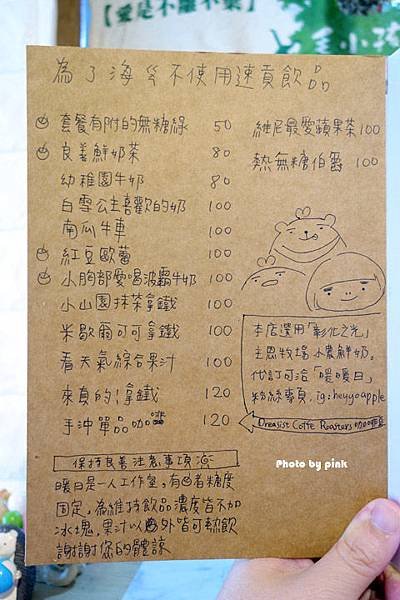 【愛是不離不棄】
為了海ㄠ不使用速貢飲品
套餐有附的無糖綠 50
良善鮮奶茶 80
幼稚園牛奶 80
白雪公主喜歡的奶 100
南瓜牛車 100
紅豆歐蕾 100
小朋部都愛喝波霸牛奶 100
小山園抹茶拿鐵 100
米歇爾可可拿鐵 100
看天氣綜合果汁 100
來真的!拿鐵 120
手沖單品咖啡 120
維尼最愛蘋果茶 100
熱無糖伯爵 100
本店選用「彰化之光」
主恩牧場小農鮮奶。
代訂可洽「暖暖日」
粉絲專頁. ig:heyyoapple
Dreasist Coffe Roasters
保持良善注意事項
暖日是一人工作室,有者糖度
固定,為維持飲品濃度皆不加
冰塊,果汁以外皆可熱飲
謝謝您的體諒
Photo by pink